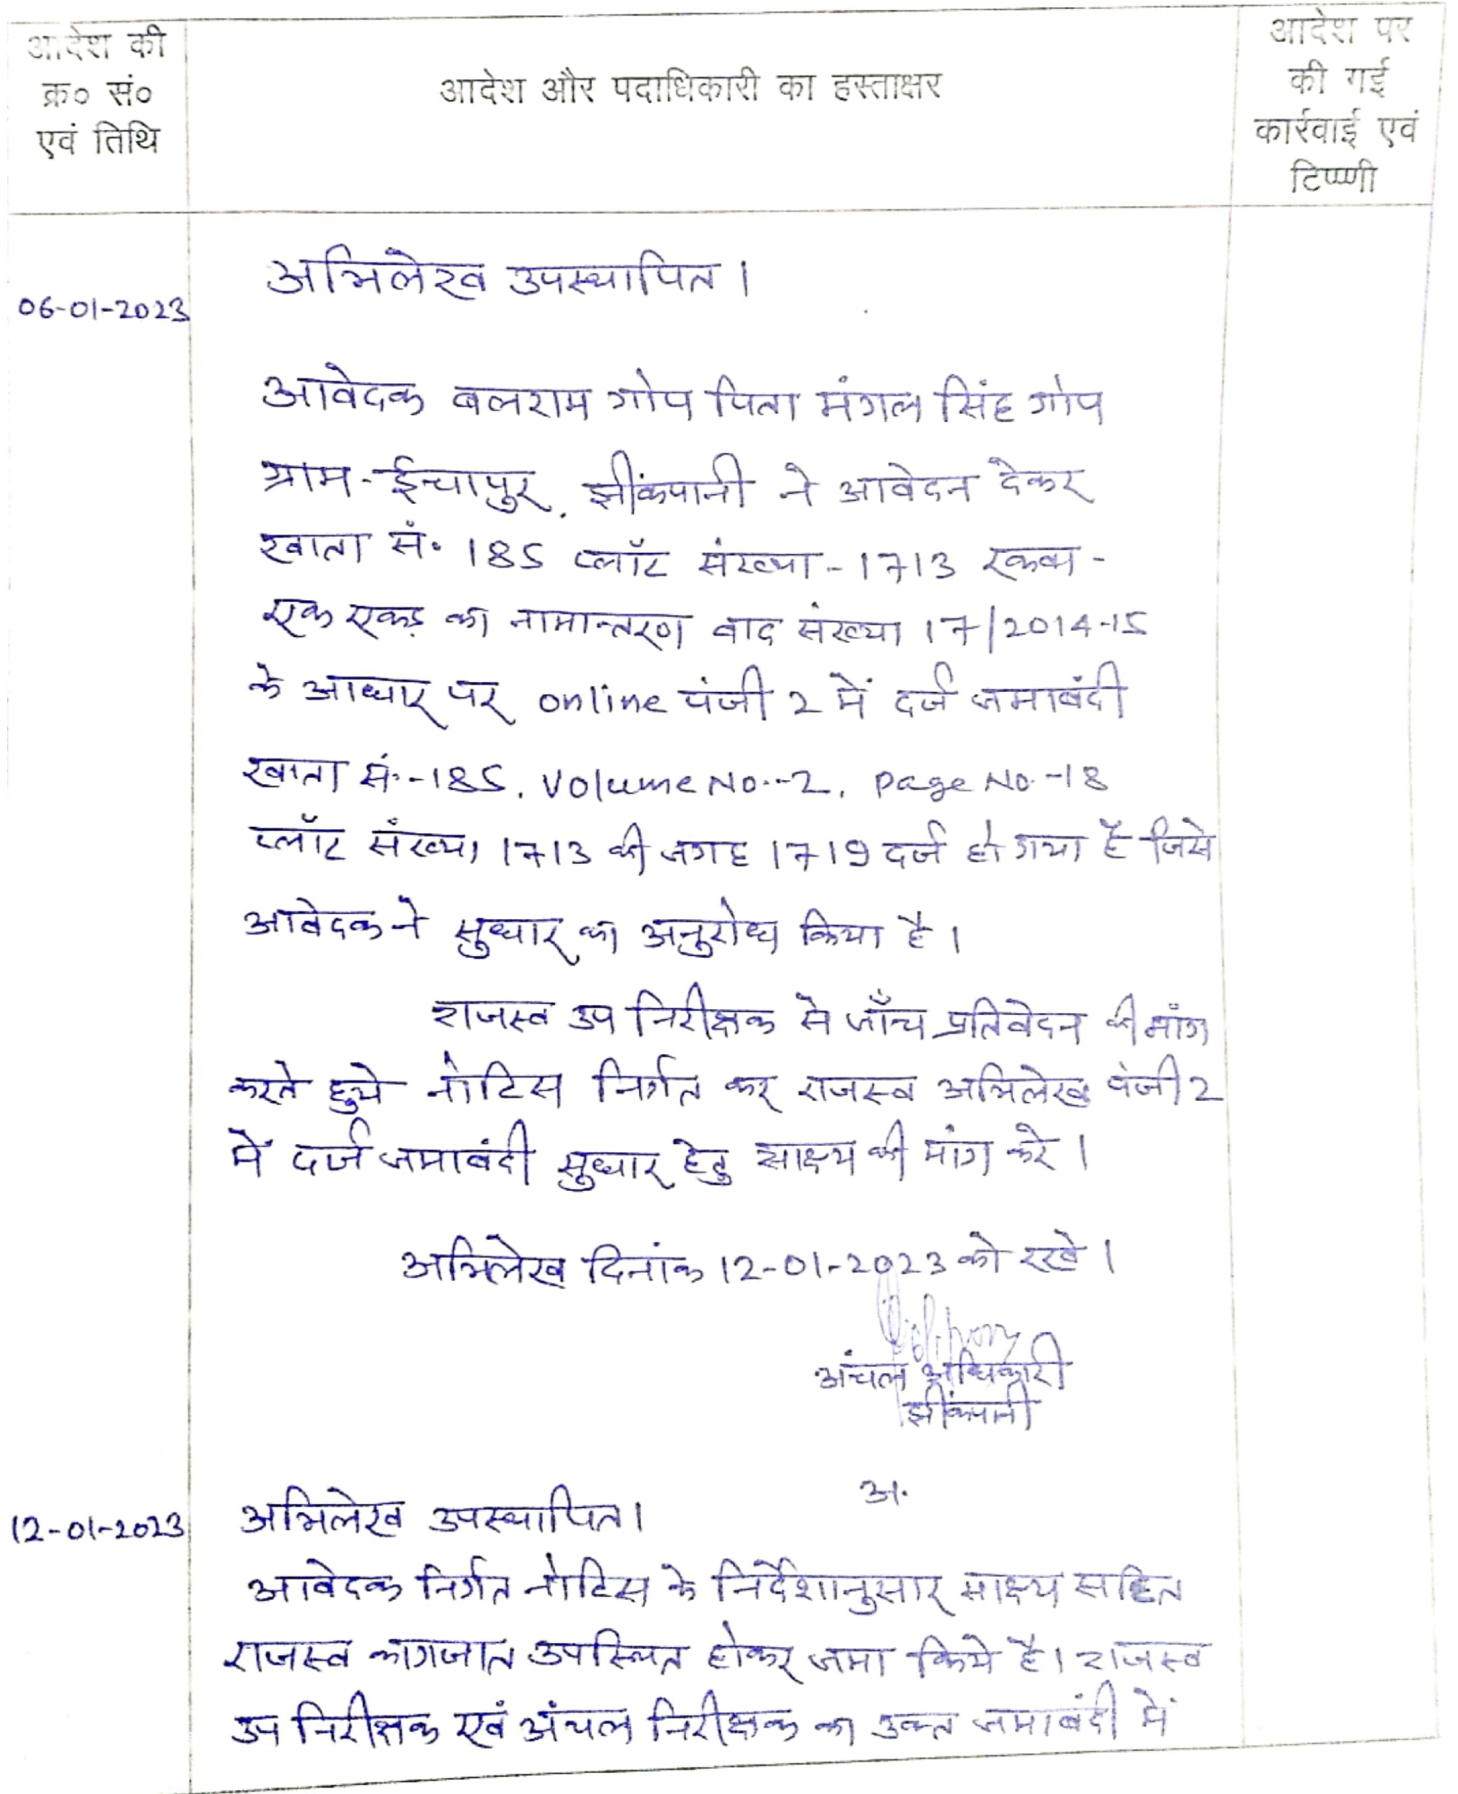 आदेश की
क्र० सं०
एवं तिथि
आदेश और पदाधिकारी का हस्ताक्षर
आदेश पर
की गई
कार्रवाई एवं
टिप्पणी
06-01-2023
अभिलेख उपस्थापित।
आवेदक बलराम गोप पिता मंगल सिंह गोप
ग्राम-ईचापुर, झींकपानी ने आवेदन देकर
खाता सं. 185 प्लॉट संख्या-1713 रकवा-
एक एकड़ का नामान्तरण वाद संख्या 17/2014-15
के आधार पर online पंजी 2 में दर्ज जमाबंदी
खाता सं.-185, Volume No.-2, Page No.-18
प्लॉट संख्या 1713 की जगह 1719 दर्ज हो गया है जिसे
आवेदक ने सुधार का अनुरोध किया है।
राजस्व उप निरीक्षक से जाँच प्रतिवेदन की मांग
करते हुये नोटिस निर्गत कर राजस्व अभिलेख पंजी 2
में दर्ज जमाबंदी सुधार हेतु साक्ष्य की मांग करे।
अभिलेख दिनांक 12-01-2023 को रखे।
अंचल अधिकारी
झींकपानी
अ.
12-01-2023
अभिलेख उपस्थापित।
आवेदक निर्गत नोटिस के निर्देशानुसार साक्ष्य सहित
राजस्व कागजात उपस्थित होकर जमा किये है। राजस्व
उप निरीक्षक एवं अंचल निरीक्षक का उक्त जमाबंदी में